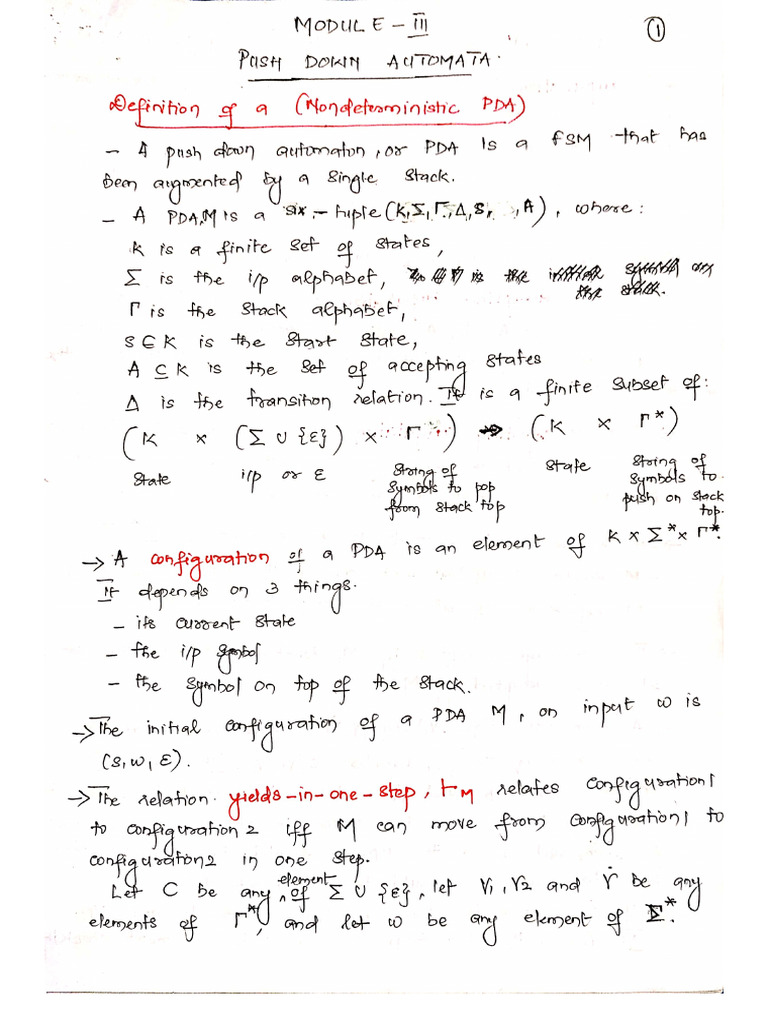 MODULE - III
①
PUSH DOWN AUTOMATA.
Definition of a (Nondeterministic PDA)
- A push down automaton, or PDA is a FSM that has
been augmented by a single stack.
- A PDA, M is a six - tuple (K, Σ, Γ, Δ, S, , A), where:
K is a finite set of states,
Σ is the i/p alphabet,
Γ is the stack alphabet,
S ∈ K is the start state,
A ⊆ K is the set of accepting states
Δ is the transition relation. It is a finite subset of:
(K × (Σ ∪ {ε}) × Γ*) → (K × Γ*)
State i/p or ε String of symbols to pop from stack top State String of symbols to push on stack top.
→ A configuration of a PDA is an element of K × Σ* × Γ*.
It depends on 3 things.
- its current state
- the i/p symbol
- the symbol on top of the stack.
→ The initial configuration of a PDA M, on input w is
(s, w, ε).
→ The relation yields-in-one-step, ⊢M relates configuration1
to configuration2 iff M can move from configuration1 to
configuration2 in one step.
Let C be any element of Σ ∪ {ε}, let γ1, γ2 and γ be any
elements of Γ*, and let w be any element of Σ*.